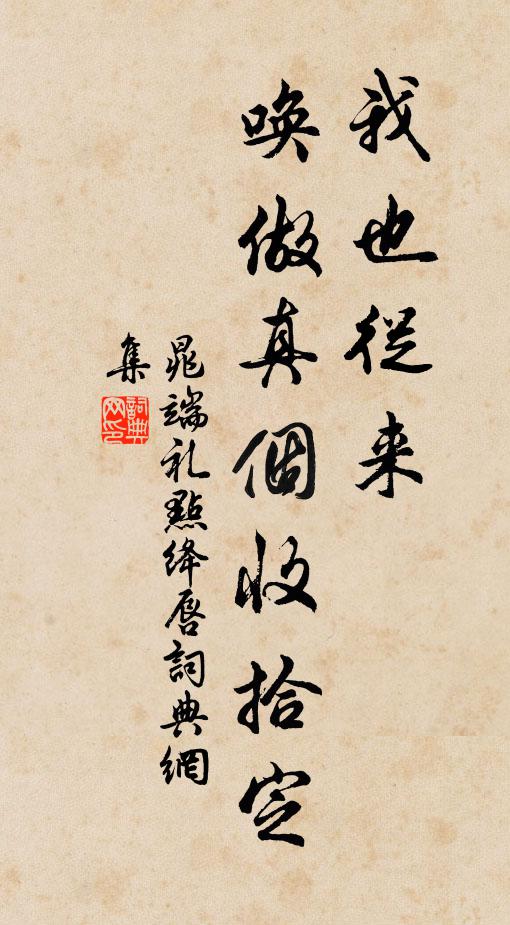 我也從来
喚做真個收拾定
晁端礼點绛唇詞典網
集
詞典网印